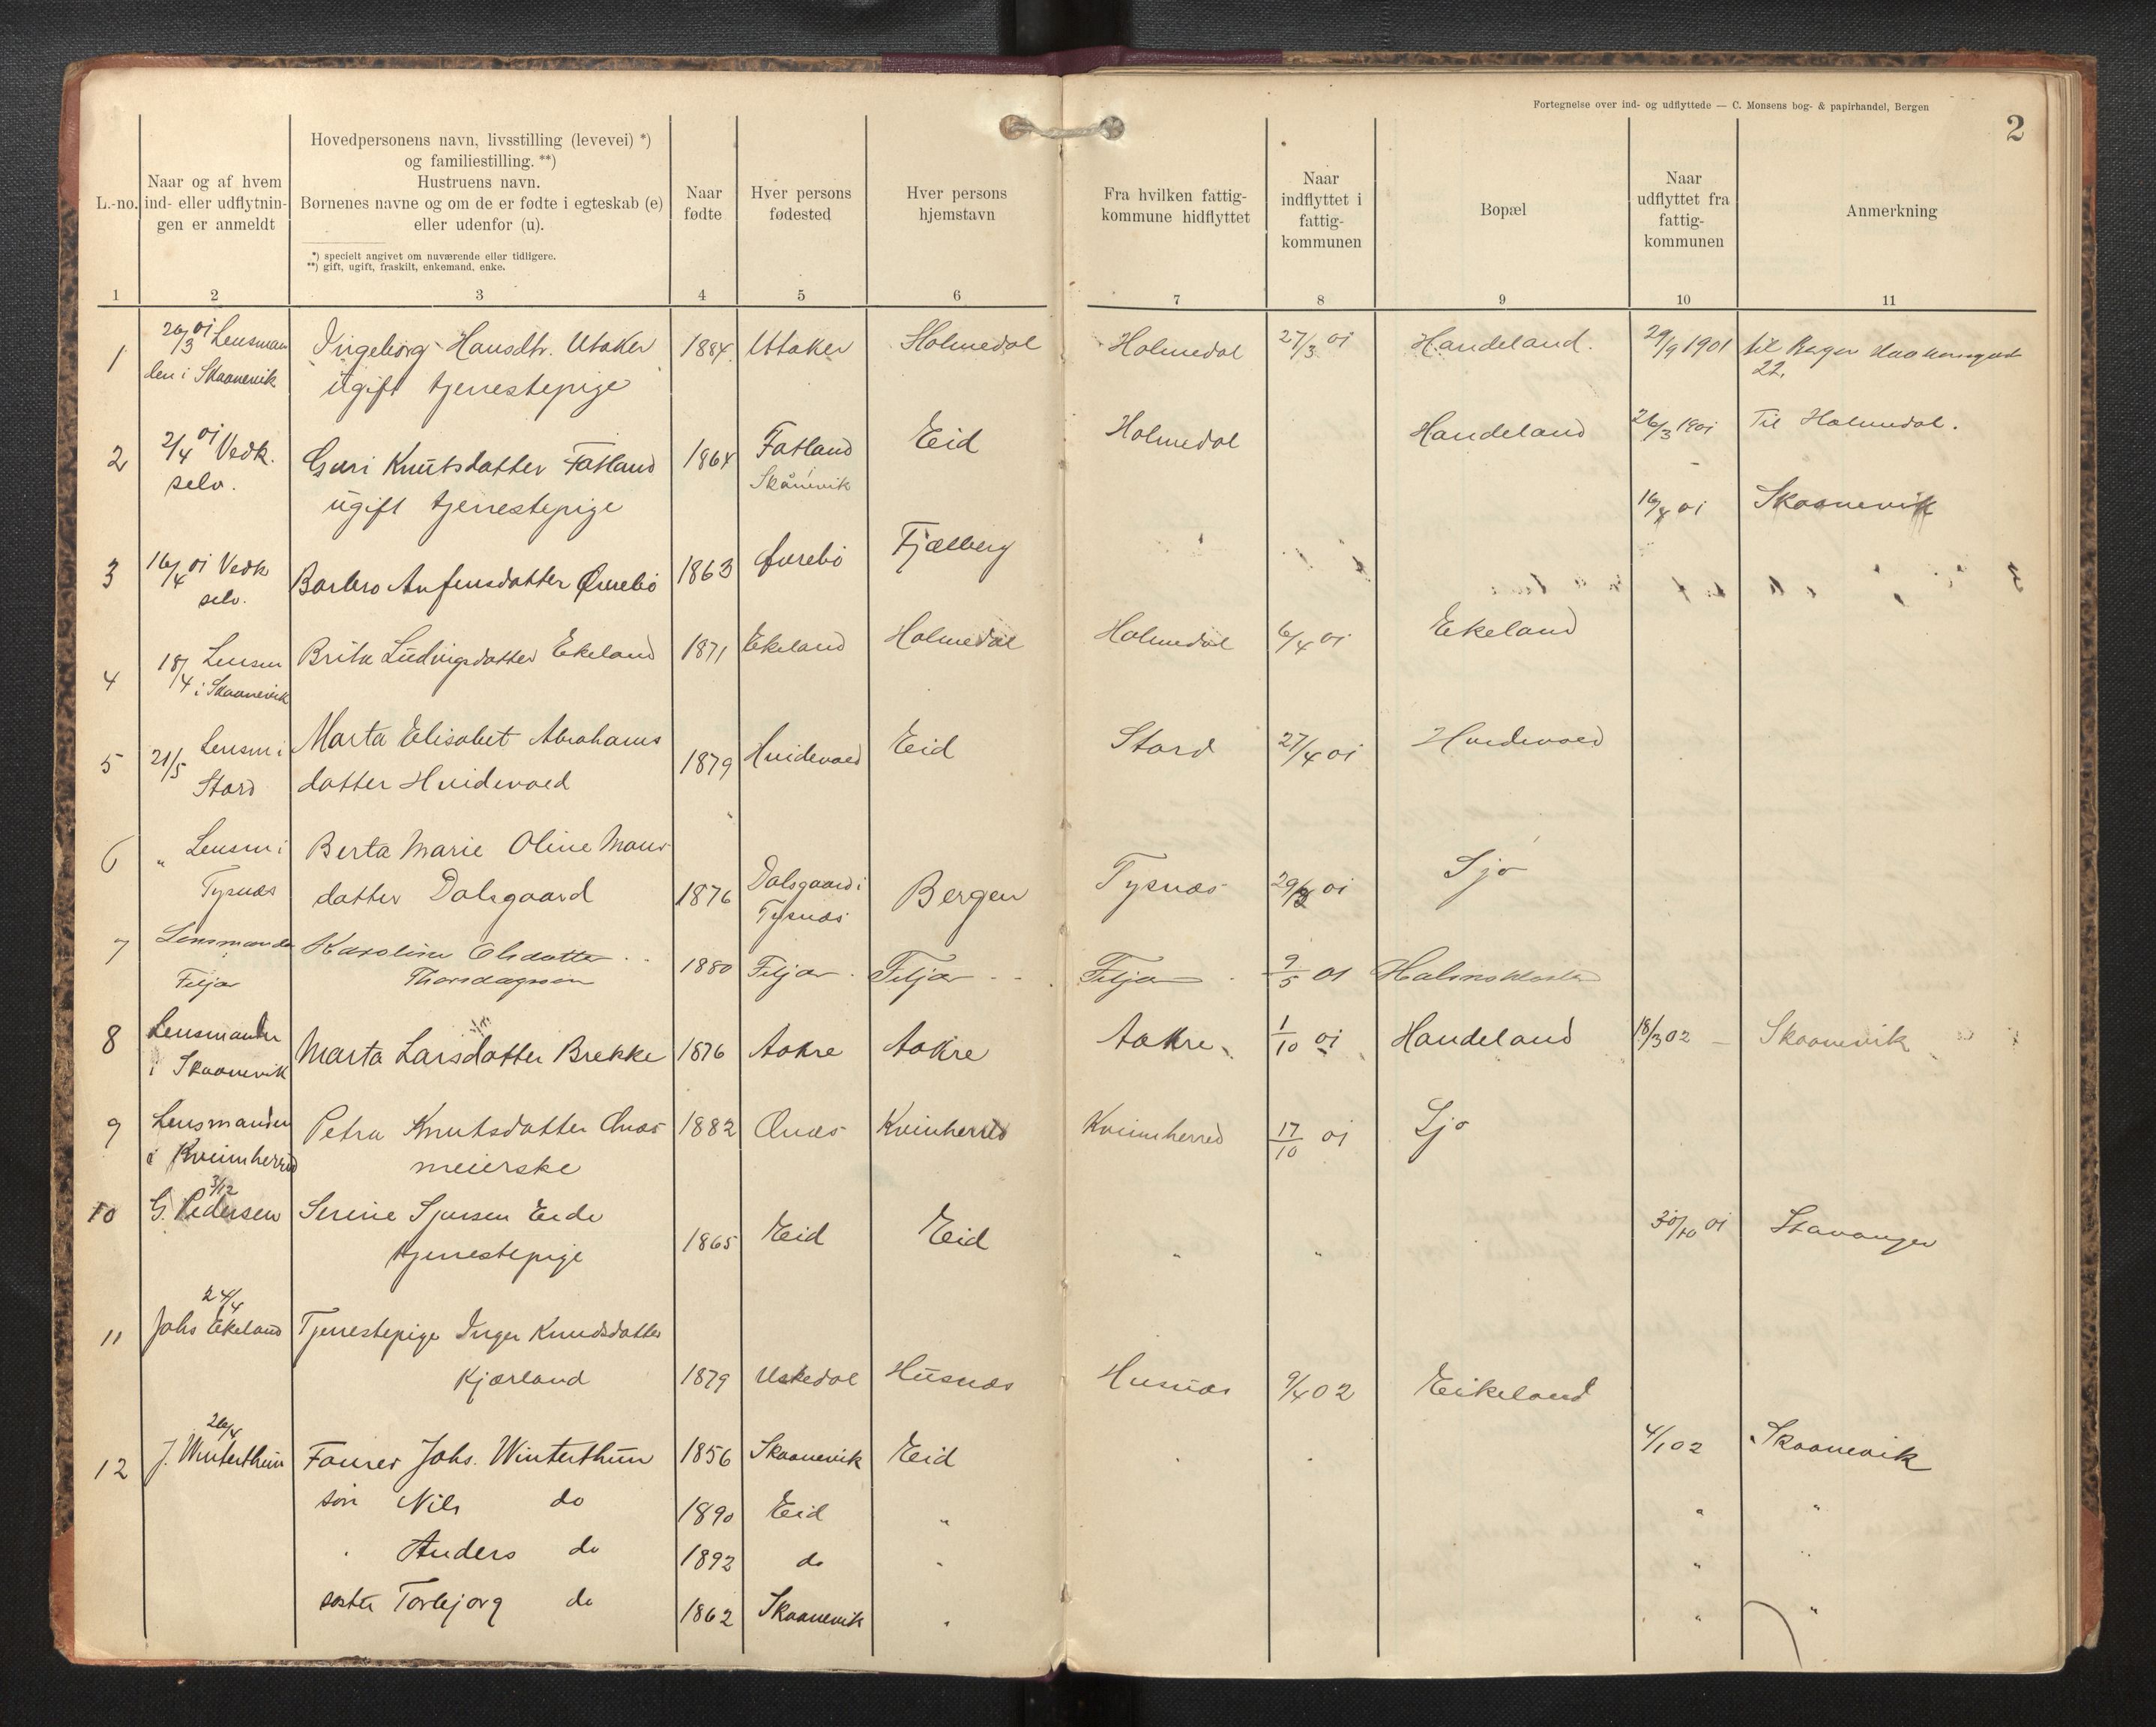 Fortegnelse over ind- og udflyttede — C. Monsens bog- & papirhandel, Bergen
2
L.-no.
Naar og af hvem
ind- eller udflytnin-
gen er anmeldt
Hovedpersonens navn, livsstilling (levevei) *)
og familiestilling. **)
Hustruens navn.
Børnenes navne og om de er fødte i egteskab (e)
eller udenfor (u).
*) specielt angivet om nuværende eller tidligere.
**) gift, ugift, fraskilt, enkemand, enke.
Naar
fødte
Hver persons
fødested
Hver persons
hjemstavn
Fra hvilken fattig-
kommune hidflyttet
Naar
indflyttet i
fattig-
kommunen
Bopæl
Naar
udflyttet fra
fattig-
kommunen
Anmerkning
1 2 3 4 5 6 7 8 9 10 11
1 26/3 01 Lensman Ingeborg Hansdtr. Utaker 1884 Uttaker Holmedal Holmedal 27/3 01 Handeland. 29/9 1901 til
den i Skaanevik ugift tjenestepige 22.
2 2/4 01 Vedk. Guri Knutsdatter Fatland 1864 Fatland Eid Holmedal Handeland 26/3 1901 Til Holmedal.
selv. ugift tjenestepige Skånevik
16/4 01 Skaanevik
3 16/4 01 Vedk Barbro Anfinsdatter Øvrebö 1863 Øvrebö Fjælberg
selv.
4 18/4 Lensm Brita Ludvigsdatter Ekeland 1871 Ekeland Holmedal Holmedal 6/4 01 Ekeland
i Skaanevik
5 21/5 Lensm i Marta Elisabet Abrahams 1879 Hvidevoed Eid Stord 27/4 01 Hvidevoed
Stord datter Hvidevoed
6 " Lensm i Berta Marie Oline Mons
Tysnæs datter Dalsgaard 1876 Dalsgaard i Bergen Tysnæs 29/3 01 Sjo
Tysnæs
7 Lensmanden Karoline Olsdatter 1880 Fitjar Fitjar Fitjar 9/5 01
Fitjar
8 Lensmanden Marta Larsdatter Brekke 1876 Aakre Aakre Aakre 1/10 01 Handeland 18/3 02 – Skaanevik
i Skaanevik
9 Lensmanden Petra Knutsdatter Ønæs 1882 Ønæs Kvinherred Kvinnherred 17/10 01 Sjo
i Kvinnherred meierske
3/12
10 G. Pedersen Serine Sjursen Eide 1865 Eid Eid " " 30/10 01 Stavanger
tjenestepige
24/4
11 Johs Ekeland Tjenestepige Inger Knudsdatter
Kjærland 1879 Uskedal Husnæs Husnæs 9/4 02 Eikeland
26/4
12 J. Winterthun Faurer Johs. Winterthun 1856 Skaanevik Eid 4/1 02 Skaanevik
sön Nils do 1890 Eid " " "
Anders do 1892 do " " "
söster Torbjorg do 1862 Skaanevik " " "